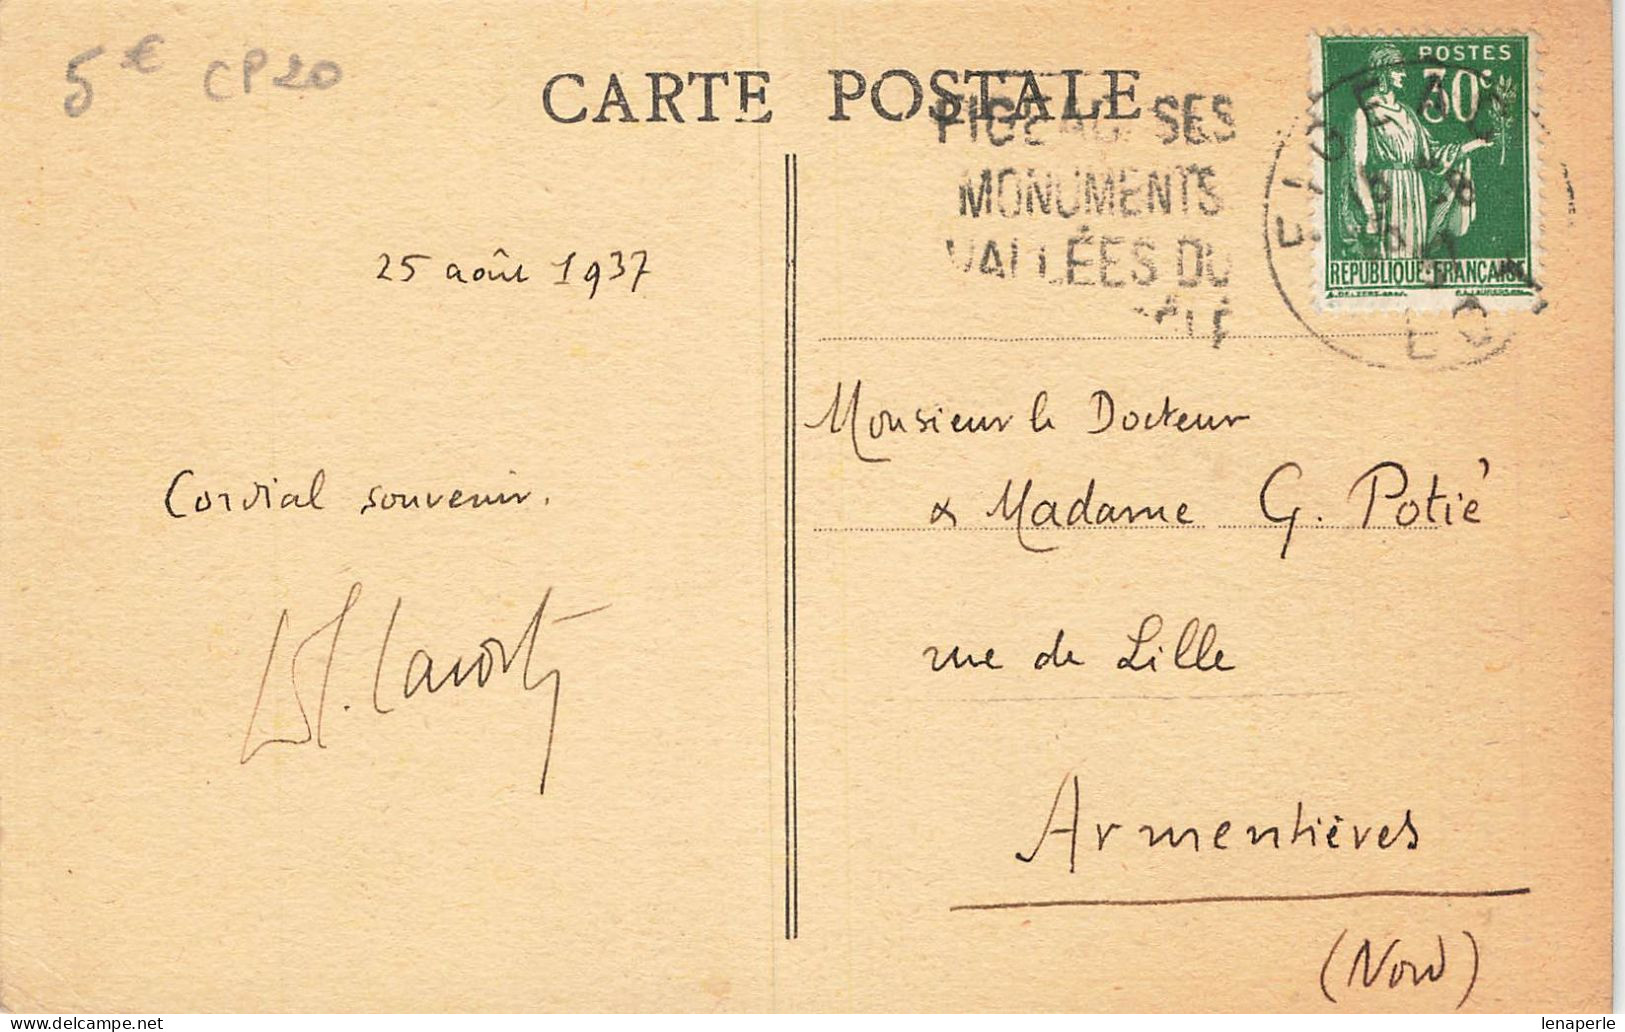 5 € CP20
CARTE POSTALE
POSTES
30c
REPUBLIQUE·FRANÇAISE
FIGEAC SES
MONUMENTS
VALLÉES DU
FIGEAC
LOT
25 août 1937
Cordial souvenir.
Monsieur le Docteur
& Madame G. Potié
rue de Lille
Armentières
(Nord)
lenaperle